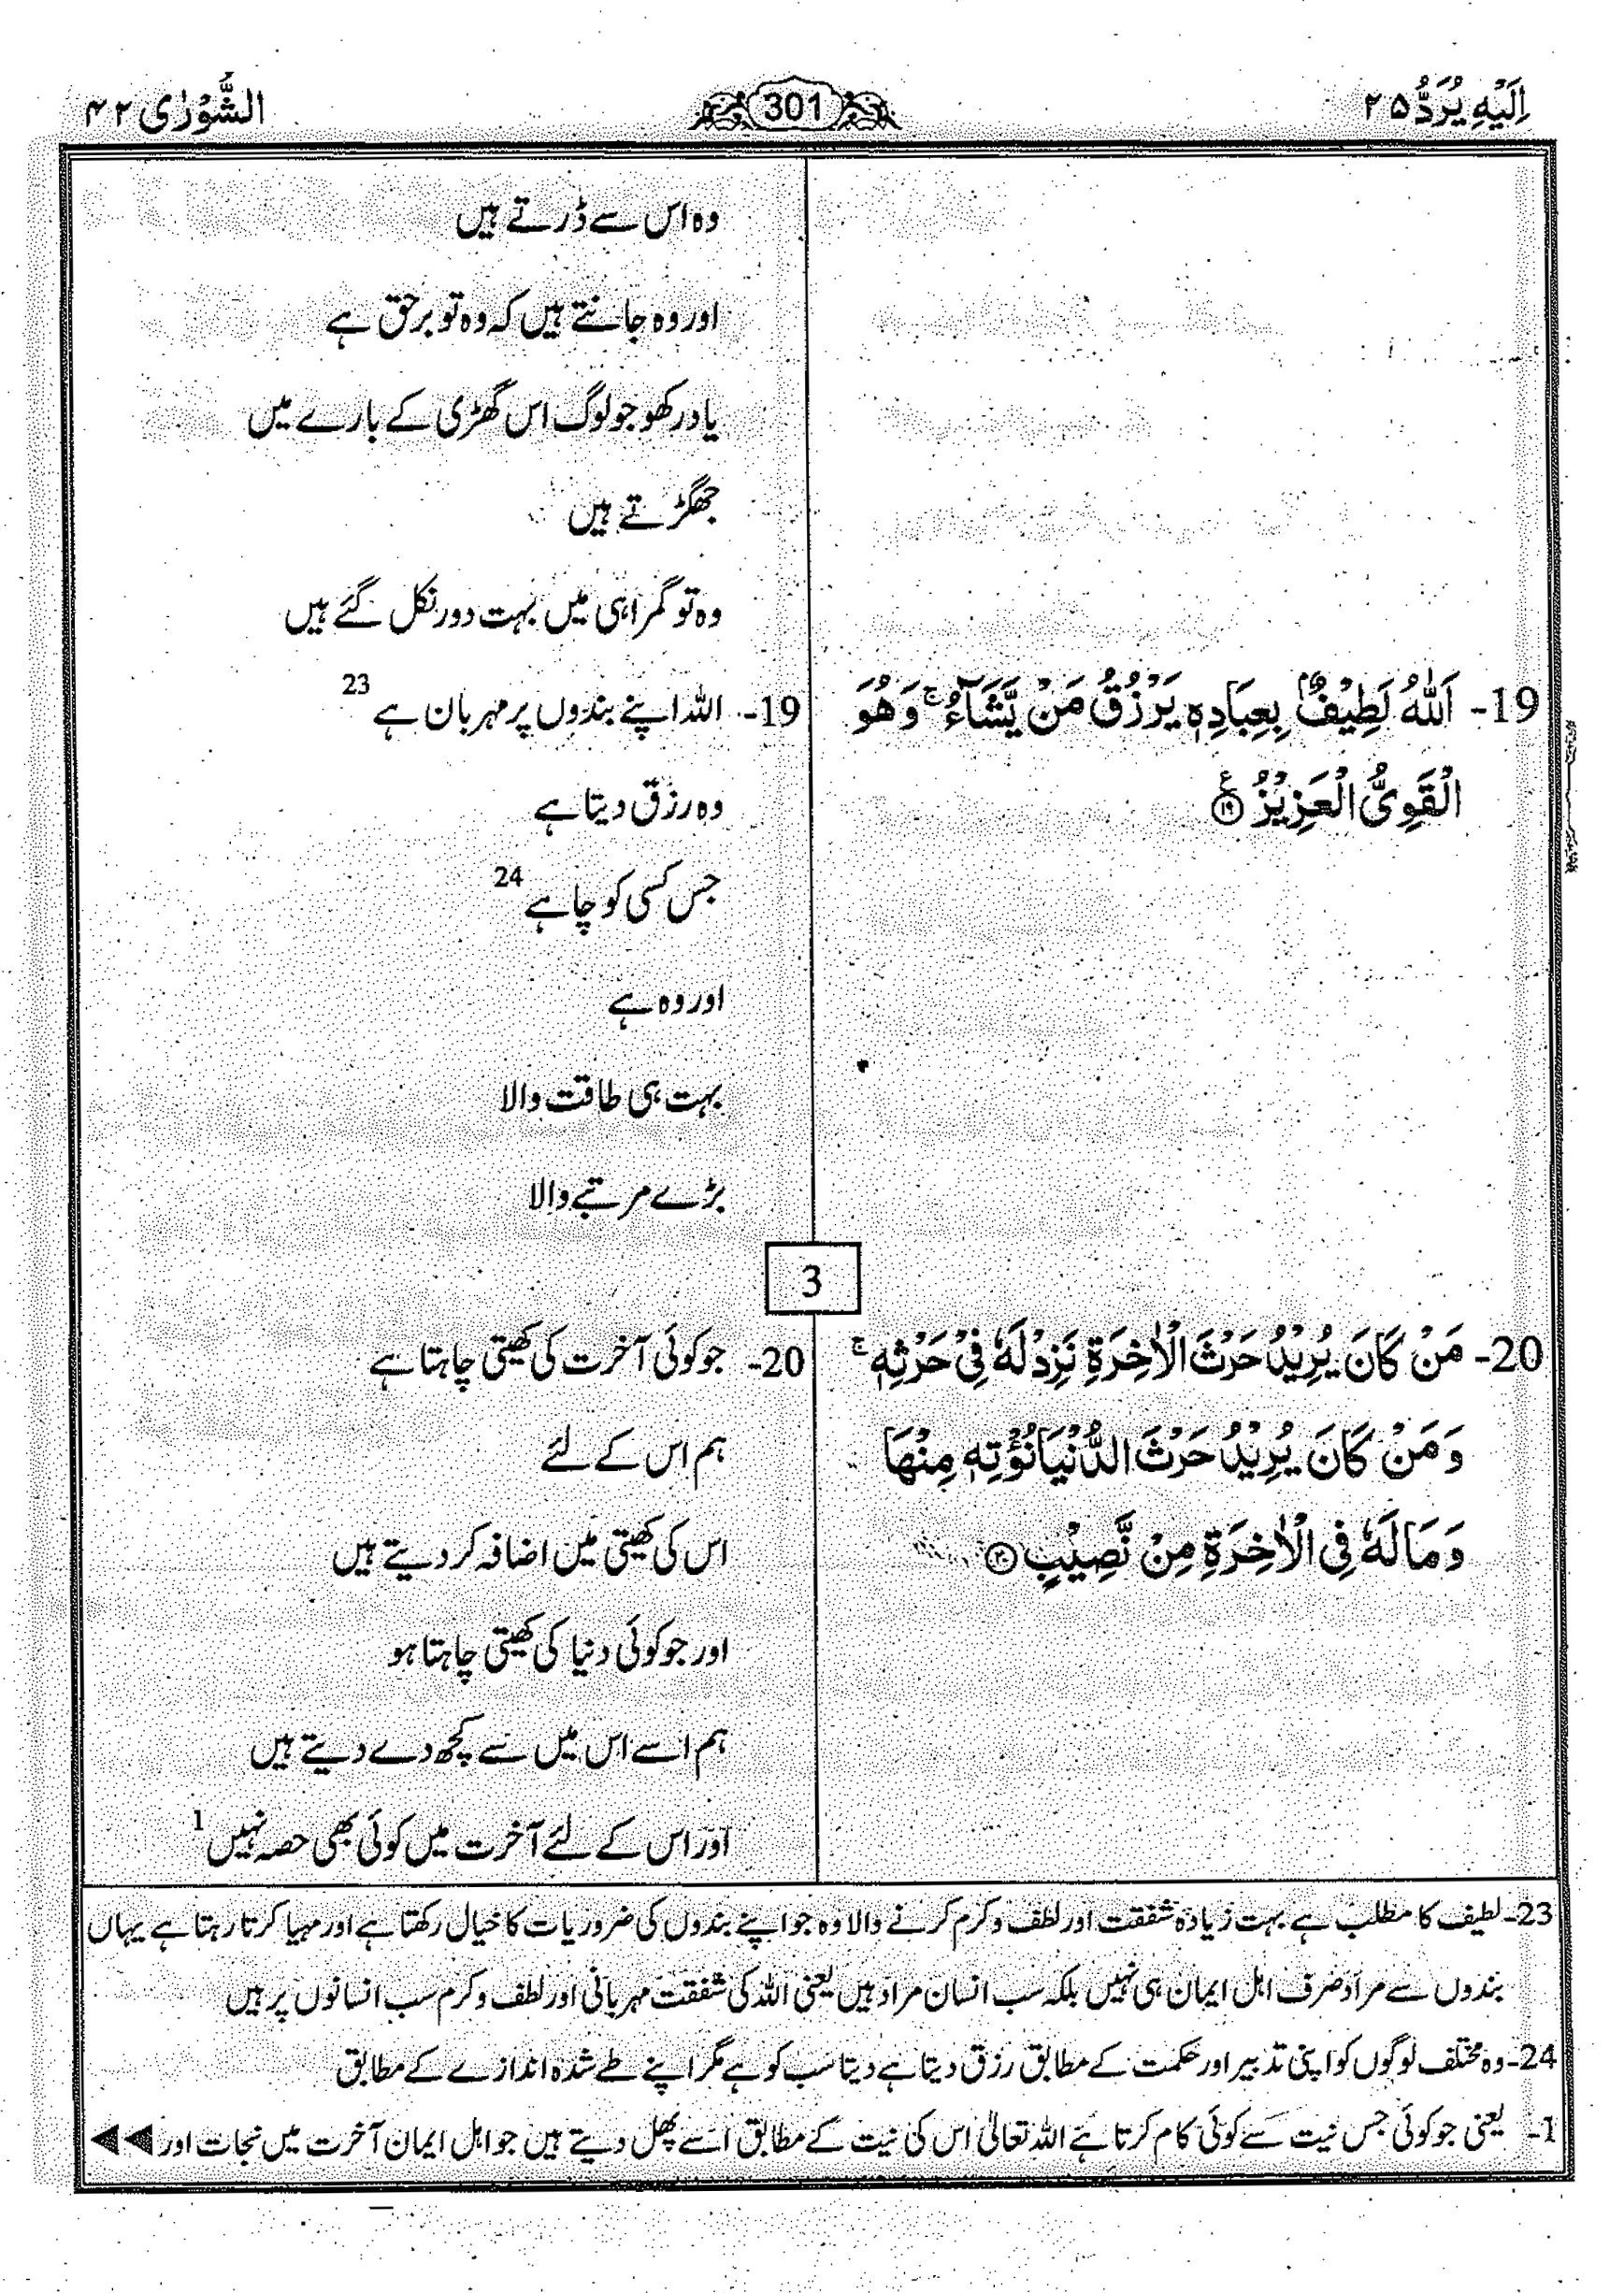 اِلَیْهِ یُرَدُّ ۲۵
301
الشُّوْرٰی ۴۲
وہ اس سے ڈرتے ہیں
اور وہ جانتے ہیں کہ وہ تو برحق ہے
یاد رکھو جو لوگ اس گھڑی کے بارے میں
جھگڑتے ہیں
وہ تو گمراہی میں بہت دور نکل گئے ہیں
19- اَللّٰهُ لَطِیْفٌۢ بِعِبَادِهٖ یَرْزُقُ مَنْ یَّشَآءُ ۚ وَهُوَ
الْقَوِیُّ الْعَزِیْزُ ﴿۱۹﴾ ع
19- اللہ اپنے بندوں پر مہربان ہے 23
وہ رزق دیتا ہے
جس کسی کو چاہے 24
اور وہ ہے
بہت ہی طاقت والا
بڑے مرتبے والا
3
20- مَنْ كَانَ یُرِیْدُ حَرْثَ الْاٰخِرَةِ نَزِدْ لَهٗ فِیْ حَرْثِهٖ ۚ
وَمَنْ كَانَ یُرِیْدُ حَرْثَ الدُّنْیَا نُؤْتِهٖ مِنْهَا
وَمَا لَهٗ فِی الْاٰخِرَةِ مِنْ نَّصِیْبٍ ﴿۲۰﴾
20- جو کوئی آخرت کی کھیتی چاہتا ہے
ہم اس کے لئے
اس کی کھیتی میں اضافہ کر دیتے ہیں
اور جو کوئی دنیا کی کھیتی چاہتا ہو
ہم اسے اس میں سے کچھ دے دیتے ہیں
اور اس کے لئے آخرت میں کوئی بھی حصہ نہیں 1
23- لطیف کا مطلب ہے بہت زیادہ شفقت اور لطف و کرم کرنے والا وہ جو اپنے بندوں کی ضروریات کا خیال رکھتا ہے اور مہیا کرتا رہتا ہے یہاں
بندوں سے مراد صرف اہل ایمان ہی نہیں بلکہ سب انسان مراد ہیں یعنی اللہ کی شفقت مہربانی اور لطف و کرم سب انسانوں پر ہیں
24- وہ مختلف لوگوں کو اپنی تدبیر اور حکمت کے مطابق رزق دیتا ہے دیتا سب کو ہے مگر اپنے طے شدہ اندازے کے مطابق
1- یعنی جو کوئی جس نیت سے کوئی کام کرتا ہے اللہ تعالیٰ اس کی نیت کے مطابق اسے پھل دیتے ہیں جو اہل ایمان آخرت میں نجات اور ◄◄